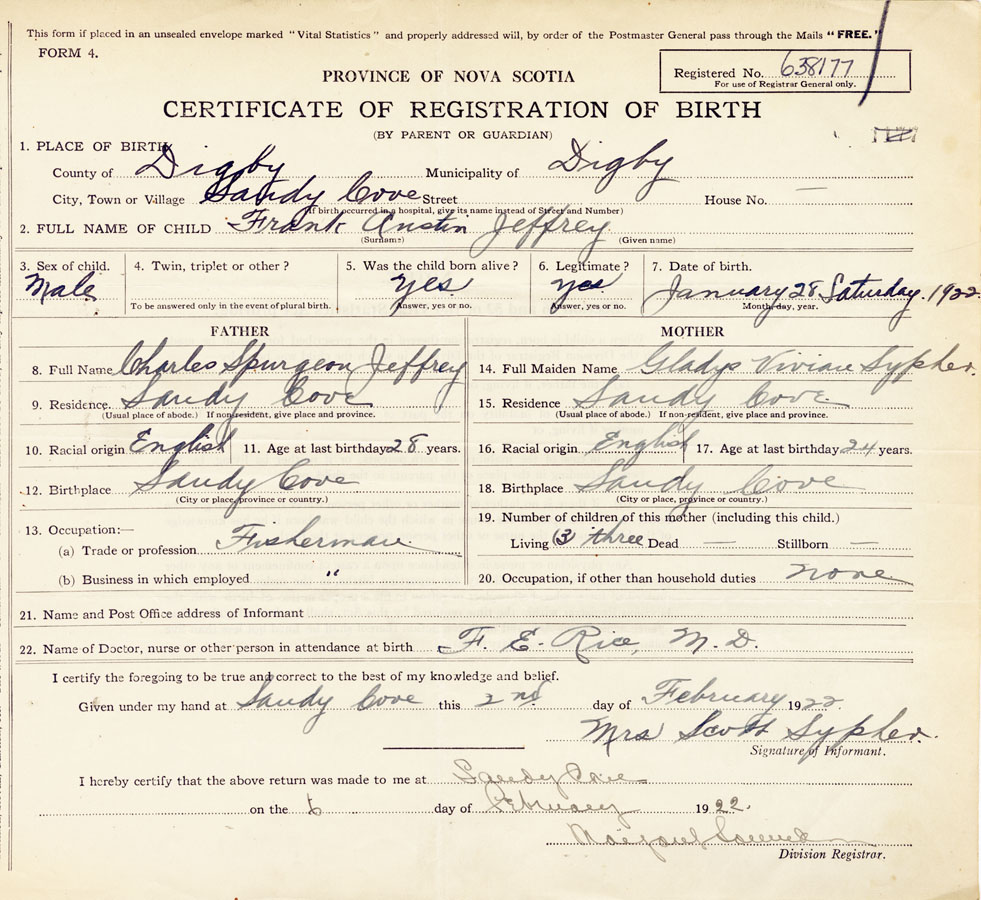 This form if placed in an unsealed envelope marked "Vital Statistics" and properly addressed will, by order of the Postmaster General pass through the Mails "FREE."
FORM 4.
Registered No. 638177
For use of Registrar General only.
PROVINCE OF NOVA SCOTIA
CERTIFICATE OF REGISTRATION OF BIRTH
(BY PARENT OR GUARDIAN)
1. PLACE OF BIRTH
County of Digby Municipality of Digby
City, Town or Village Sandy Cove Street House No. —
(If birth occurred in a hospital, give its name instead of Street and Number)
2. FULL NAME OF CHILD Frank Austin Jeffrey
(Surname) (Given name)
3. Sex of child. 4. Twin, triplet or other? 5. Was the child born alive? 6. Legitimate? 7. Date of birth.
Male Yes Yes January 28 Saturday. 1922
To be answered only in the event of plural birth. Answer, yes or no. Answer, yes or no. Month, day, year.
FATHER MOTHER
8. Full Name Charles Spurgeon Jeffrey 14. Full Maiden Name Gladys Vivian Sypher.
9. Residence. Sandy Cove 15. Residence Sandy Cove
(Usual place of abode.) If non-resident, give place and province. (Usual place of abode.) If non-resident, give place and province.
10. Racial origin English 11. Age at last birthday 28 years. 16. Racial origin English 17. Age at last birthday 24 years.
12. Birthplace Sandy Cove 18. Birthplace Sandy Cove
(City or place, province or country.) (City or place, province or country.)
13. Occupation:— 19. Number of children of this mother (including this child.)
(a) Trade or profession Fisherman Living (3) three Dead — Stillborn —
(b) Business in which employed " 20. Occupation, if other than household duties none
21. Name and Post Office address of Informant
22. Name of Doctor, nurse or other person in attendance at birth F. E. Rice, M. D.
I certify the foregoing to be true and correct to the best of my knowledge and belief.
Given under my hand at Sandy Cove this 2nd day of February 1922
Mrs Scott Sypher.
Signature of Informant.
I hereby certify that the above return was made to me at Sandy Cove
on the 6 day of February 1922.
Division Registrar.